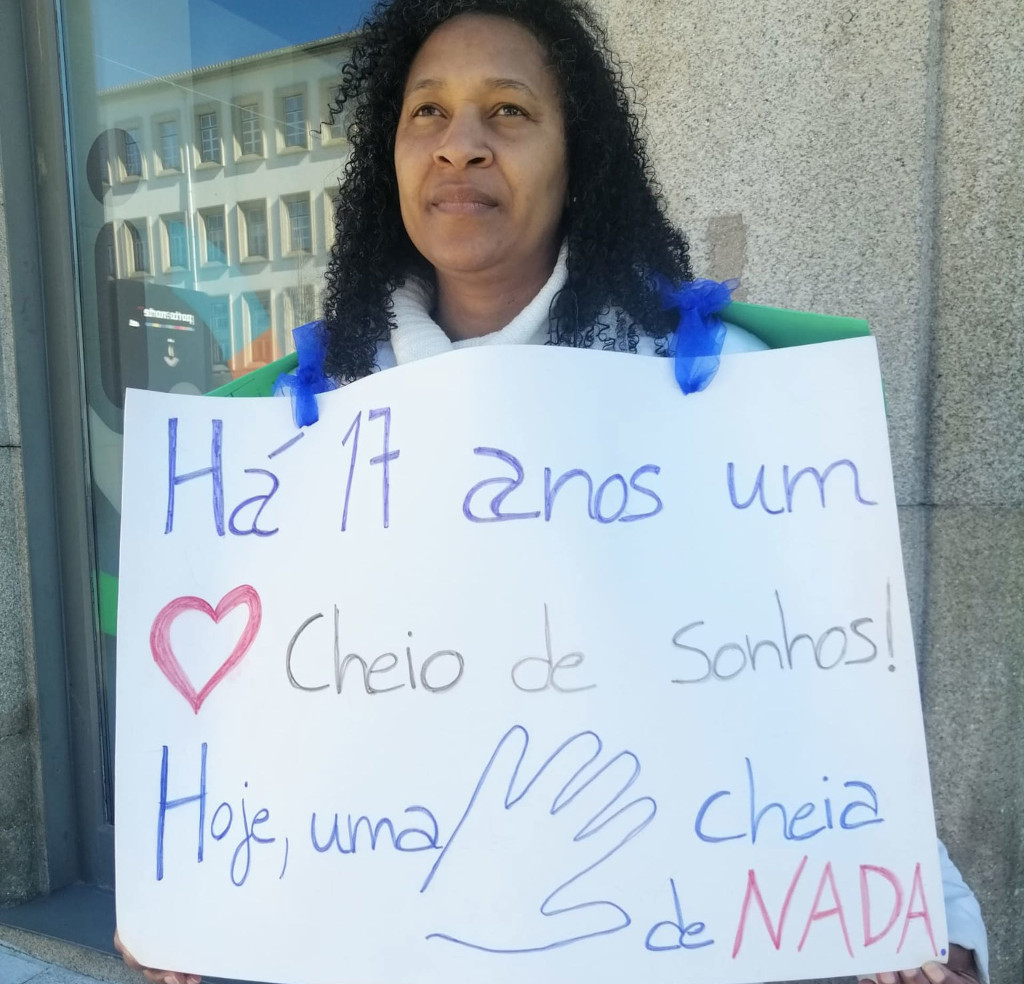 Há 17 anos um
Cheio de Sonhos!
Hoje, uma cheia
de NADA.